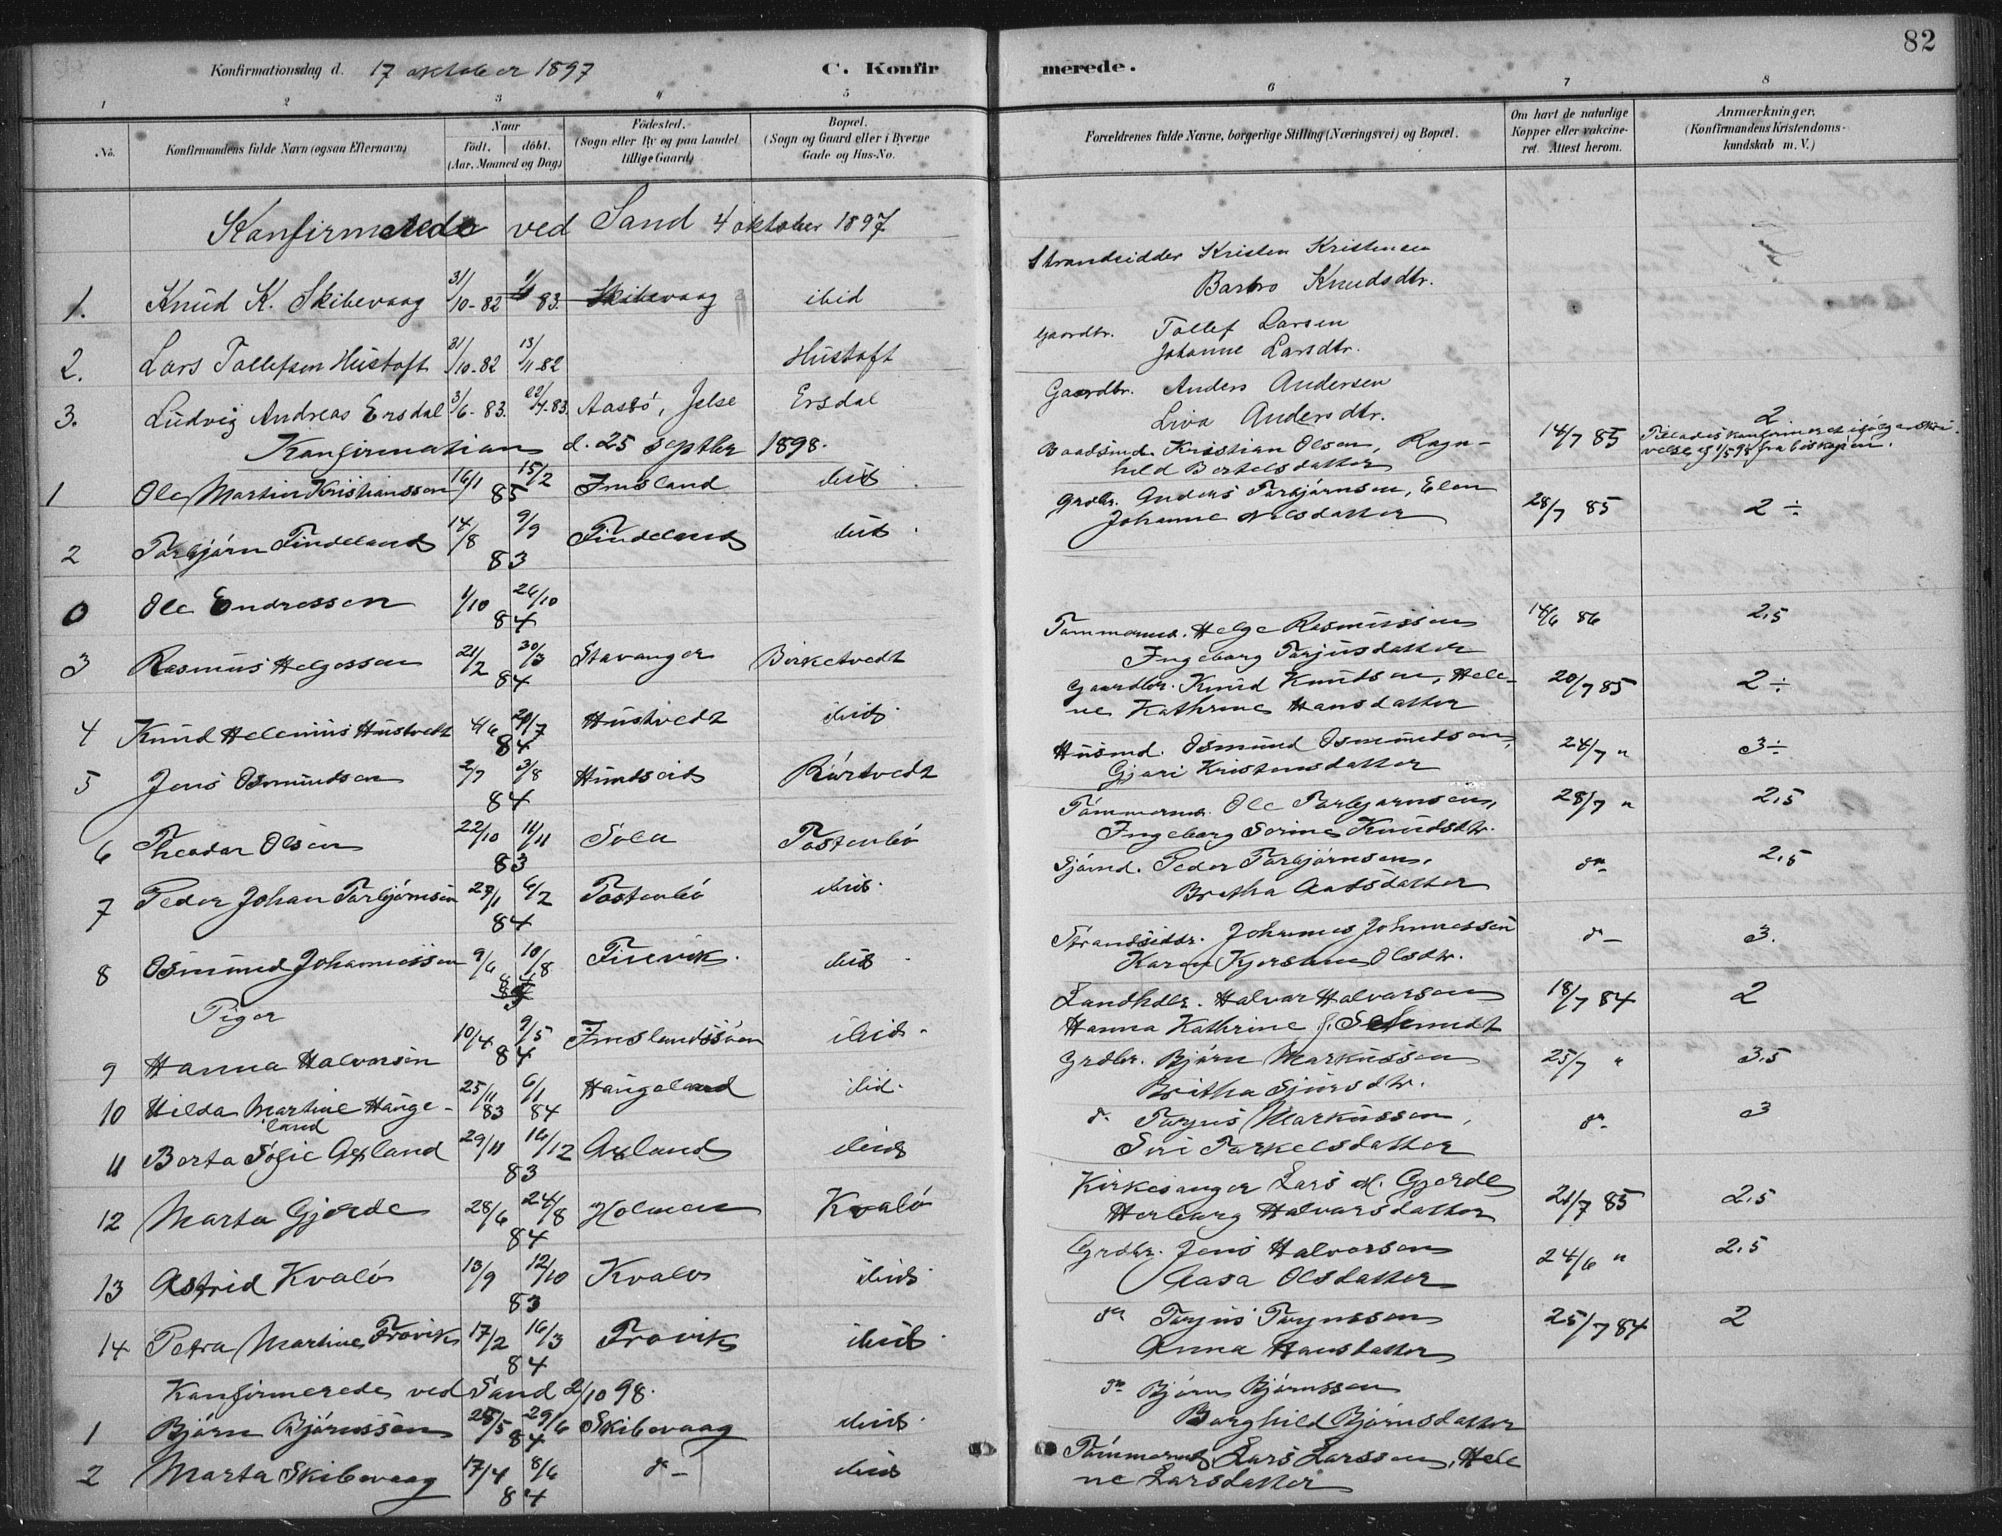 82
Konfirmationsdag d. 17 oktober 1897 C. Konfirmerede.
1 2 3 4 5 6 7 8
No. Konfirmandens fulde Navn (ogsaa Efternavn) Naar født. døbt. (Aar, Maaned og Dag) Fødested. (Sogn eller By og paa Landet tillige Gaard) Bopæl. (Sogn og Gaard eller i Byerne Gade og Hus-No. Forældrenes fulde Navne, borgerlige Stilling (Næringsvei) og Bopæl. Om havt de naturlige Kopper eller vakcineret. Attest herom. Anmærkninger. (Konfirmandens Kristendomskundskab m. V.)
Konfirmerede ved Sand 4 oktober 1897
1. Knud K. Skibevaag 31/10-82 83. Skibevaag ibid Strandsidder Kristen Kristensen Barbro Knudsdtr.
2. Lars Tollefsen Hustoft 31/10-82 13/11-82 Hustoft Gaardbr. Tollef Larsen Johanne Larsdtr.
3. Ludvig Andreas Ersdal 3/6-83. Aasbö, Jelse Ersdal Gaardbr. Anders Andersen Liva Andersdtr.
Konfirmation d. 25 septbr 1898.
1 Ole Martin Kristianssen 16/1 15/2 85 Imsland ibid Baadsmd. Kristian Olsen, Ragnhild Bertelsdatter 14/7 85 2 Tillades konfirmeret ifølge skrivelse af 1/5 98 fra biskopen.
2 Torbjörn Tindeland 14/8 9/9 83 Tindeland ibid Grdbr. Anders Torbjörnsen, Elen Johanne Nilsdatter 28/7 85 2 ÷
0 Ole Endressen 1/10 26/10 84
3 Rasmus Helgessen 21/2 30/3 84 Stavanger Birketvedt Tømmermd. Helge Rasmussen Ingeborg Torjusdatter 14/6 86 2,5
4 Knud Helenius Hustvedt 4/6 20/7 84 Hustvedt ibid. Gaardbr. Knud Knudsen, Helene Kathrine Hansdatter 20/7 85 2 ÷
5 Jens Osmundsen 2/7 3/8 84 Hundseid Rørtvedt Husmd. Osmund Osmundsen, Gjøri Kristensdatter 24/7 " 3÷
6 Theodor Olsen 22/10 11/11 83 Sola Tostenbö Tömmermd. Ole Torbjørnsen, Ingeborg Serine Knudsdtr. 28/7 " 2,5
7 Peder Johan Torbjörnsen 27/1 6/2 84 Tostenbö ibid. Sjömd. Peder Torbjörnsen, Britha Aadsdatter do 2,5
8 Osmund Johannessen 9/6 10/8 ibid Strandsiddr. Johannes Johannessen Karen Kjerstine Olsdtr. do 3.
Piger
9 Hanna Halvorsen 10/4 9/5 84 Imslandssöen ibid. Landhdlr. Halvor Halvorsen Hanna Kathrine f. Schmidt 18/7 84 2
10 Hilda Martine Hangeland 25/11 83 6/1 84 Hangeland ibid. Grdbr. Björn Markussen Britha Sjursdtr. 25/7 " 3,5
11 Berta Sofie Axland 29/11 16/12 83 Axland ibid do Torjus Markussen, Siri Torkelsdatter do 3
12 Marta Gjerde 28/6 24/8 84 Holmen Kvalö Kirkesanger Lars M. Gjerde Herborg Halvorsdatter 21/7 85 2,5
13 Astrid Kvalö 13/9 12/10 83 Kvalö ibid. Grdbr. Jens Halvorsen Aasa Olsdatter 24/6 " 2,5
14 Petra Martine Frövik 17/2 16/3 84 Frövik ibid. do Torjus Torjussen Anna Hansdatter 25/7 84 2
Konfirmerede ved Sand 2/10 98.
1 Björn Björnssen 25/5 29/6 84 Skibevaag ibid. do Björn Björnssen Borghild Björnsdatter
2 Marta Skibevaag 17/4 8/6 84 do ibid Tømmermd. Lars Larssen, Helene Larsdatter